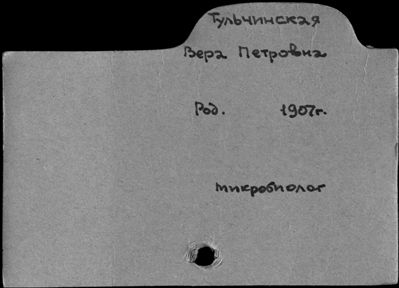 Тульчинская
Вера Петровна
Род. 1907г.
микробиолог